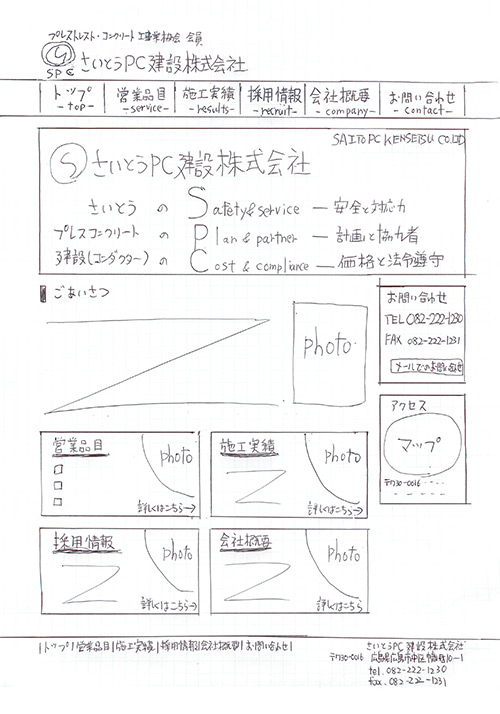 プレストレスト・コンクリート工事業協会 会員
S
SPC さいとうPC建設株式会社
トップ 営業品目 施工実績 採用情報 会社概要 お問い合わせ
-top- -service- -results- -recruit- -company- -contact-
SAITO PC KENSETSU CO.LTD
S さいとうPC建設株式会社
さいとう の Safety & service — 安全と対応力
プレスコンクリート の Plan & partner — 計画と協力者
建設(コンダクター) の Cost & compliance — 価格と法令遵守
ごあいさつ
photo
お問い合わせ
TEL 082-222-1230
FAX 082-222-1231
メールでのお問い合わせ
アクセス
マップ
〒730-0016
営業品目
photo
詳しくはこちら→
施工実績
photo
詳しくはこちら→
採用情報
photo
詳しくはこちら→
会社概要
photo
詳しくはこちら→
|トップ|営業品目|施工実績|採用情報|会社概要|お問い合わせ|
さいとうPC建設株式会社
〒730-0016 広島県広島市中区幟町10-1
tel. 082-222-1230
fax. 082-222-1231